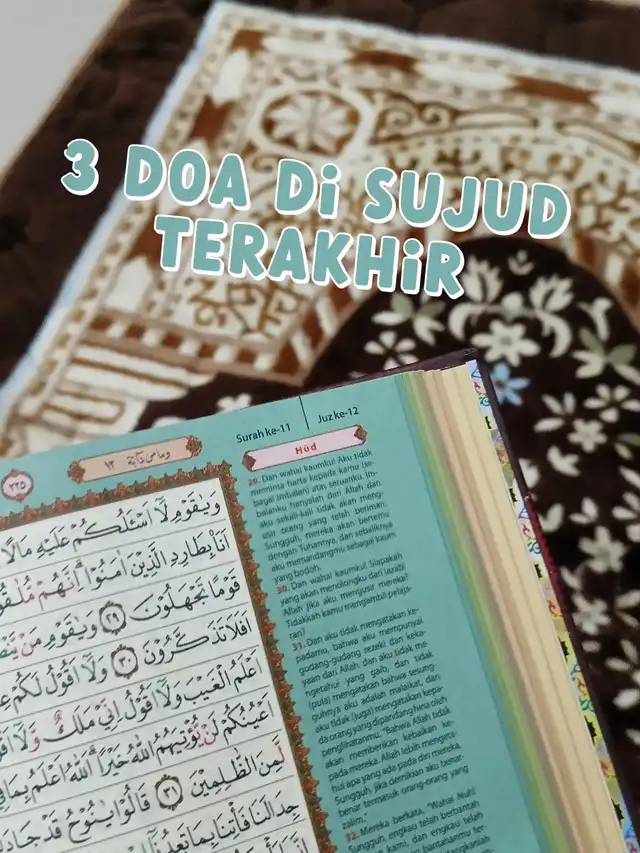 3 DOA Di SUJUD
TERAKHiR
Surah ke-11
Juz ke-12
٢٢٥
وما من دآبة ١٢
Hūd
29. Dan wahai kaumku! Aku tidak
meminta harta kepada kamu (se-
bagai imbalan) atas seruanku. Im-
balanku hanyalah dari Allah dan
aku sekali-kali tidak akan meng-
usir orang yang telah beriman.
Sungguh, mereka akan bertemu
dengan Tuhannya, dan sebaliknya
aku memandangmu sebagai kaum
yang bodoh.
30. Dan wahai kaumku! Siapakah
yang akan menolongku dari (azab)
Allah jika aku mengusir mereka?
Tidakkah kamu mengambil pelaja-
ran?
31. Dan aku tidak mengatakan ke-
padamu, bahwa aku mempunyai
gudang-gudang rezeki dan keka-
yaan dari Allah, dan aku tidak me-
ngetahui yang gaib, dan tidak
(pula) mengatakan bahwa sesung-
guhnya aku adalah malaikat, dan
aku tidak (juga) mengatakan kepa-
da orang yang dipandang hina oleh
penglihatanmu, "Bahwa Allah tidak
akan memberikan kebaikan ke-
pada mereka. Allah lebih mengeta-
hui apa yang ada pada diri mereka.
Sungguh, jika demikian aku benar-
benar termasuk orang-orang yang
zalim."
32. Mereka berkata, "Wahai Nuh!
Sungguh, engkau telah berbantah
kami, dan engkau telah
وَيٰقَوْمِ لَآ اَسْـَٔلُكُمْ عَلَيْهِ مَالًا
اَنَا۠ بِطَارِدِ الَّذِيْنَ اٰمَنُوْا ۗ اِنَّهُمْ
قَوْمًا تَجْهَلُوْنَ ٢٩ وَيٰقَوْمِ مَنْ
اَفَلَا تَذَكَّرُوْنَ ٣٠ وَلَآ اَقُوْلُ لَكُمْ
اَعْلَمُ الْغَيْبَ وَلَآ اَقُوْلُ اِنِّيْ مَلَكٌ وَّلَآ
اَعْيُنُكُمْ لَنْ يُّؤْتِيَهُمُ اللّٰهُ خَيْرًا ۗ اَللّٰهُ اَعْلَمُ بِمَا
لَّمِنَ الظّٰلِمِيْنَ ٣١ قَالُوْا يٰنُوْحُ قَدْ
جِدَالَنَا فَأْتِنَا بِمَا تَعِدُنَآ